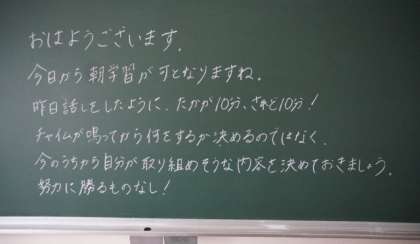 おはようございます。
今日から朝学習がすとなりますね。
昨日話しをしたように、たかが10分、されど10分!
チャイムが鳴ってから何をするか決めるのではなく、
今のうちから自分が取り組めそうな内容を決めておきましょう。
努力に勝るものなし!